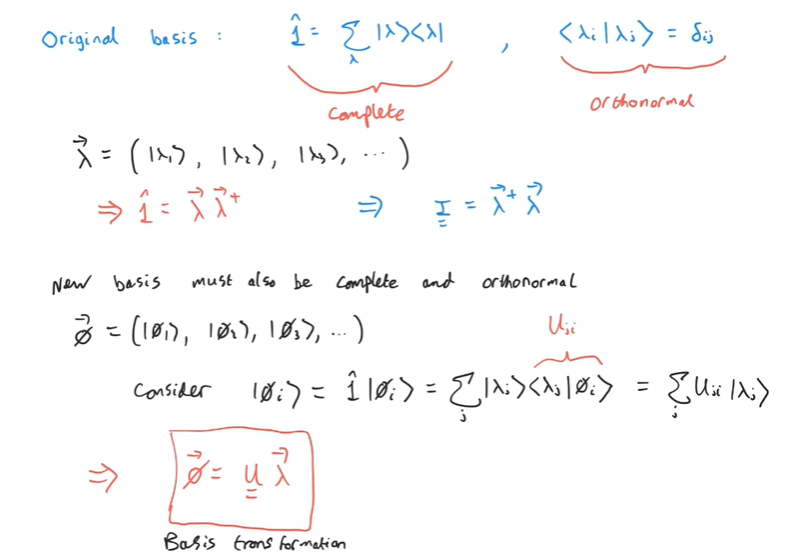 Original basis : 1̂ = ∑_λ |λ><λ| , <λi|λj> = δij
Complete orthonormal
λ⃗ = (|λ1>, |λ2>, |λ3>, ...)
⇒ 1̂ = λ⃗ λ⃗† ⇒ I = λ⃗† λ⃗
New basis must also be complete and orthonormal
ø⃗ = (|ø1>, |ø2>, |ø3>, ...) Uji
Consider |øi> = 1̂ |øi> = ∑_j |λj><λj|øi> = ∑_j Uji |λj>
⇒ ø⃗ = U λ⃗
Basis transformation